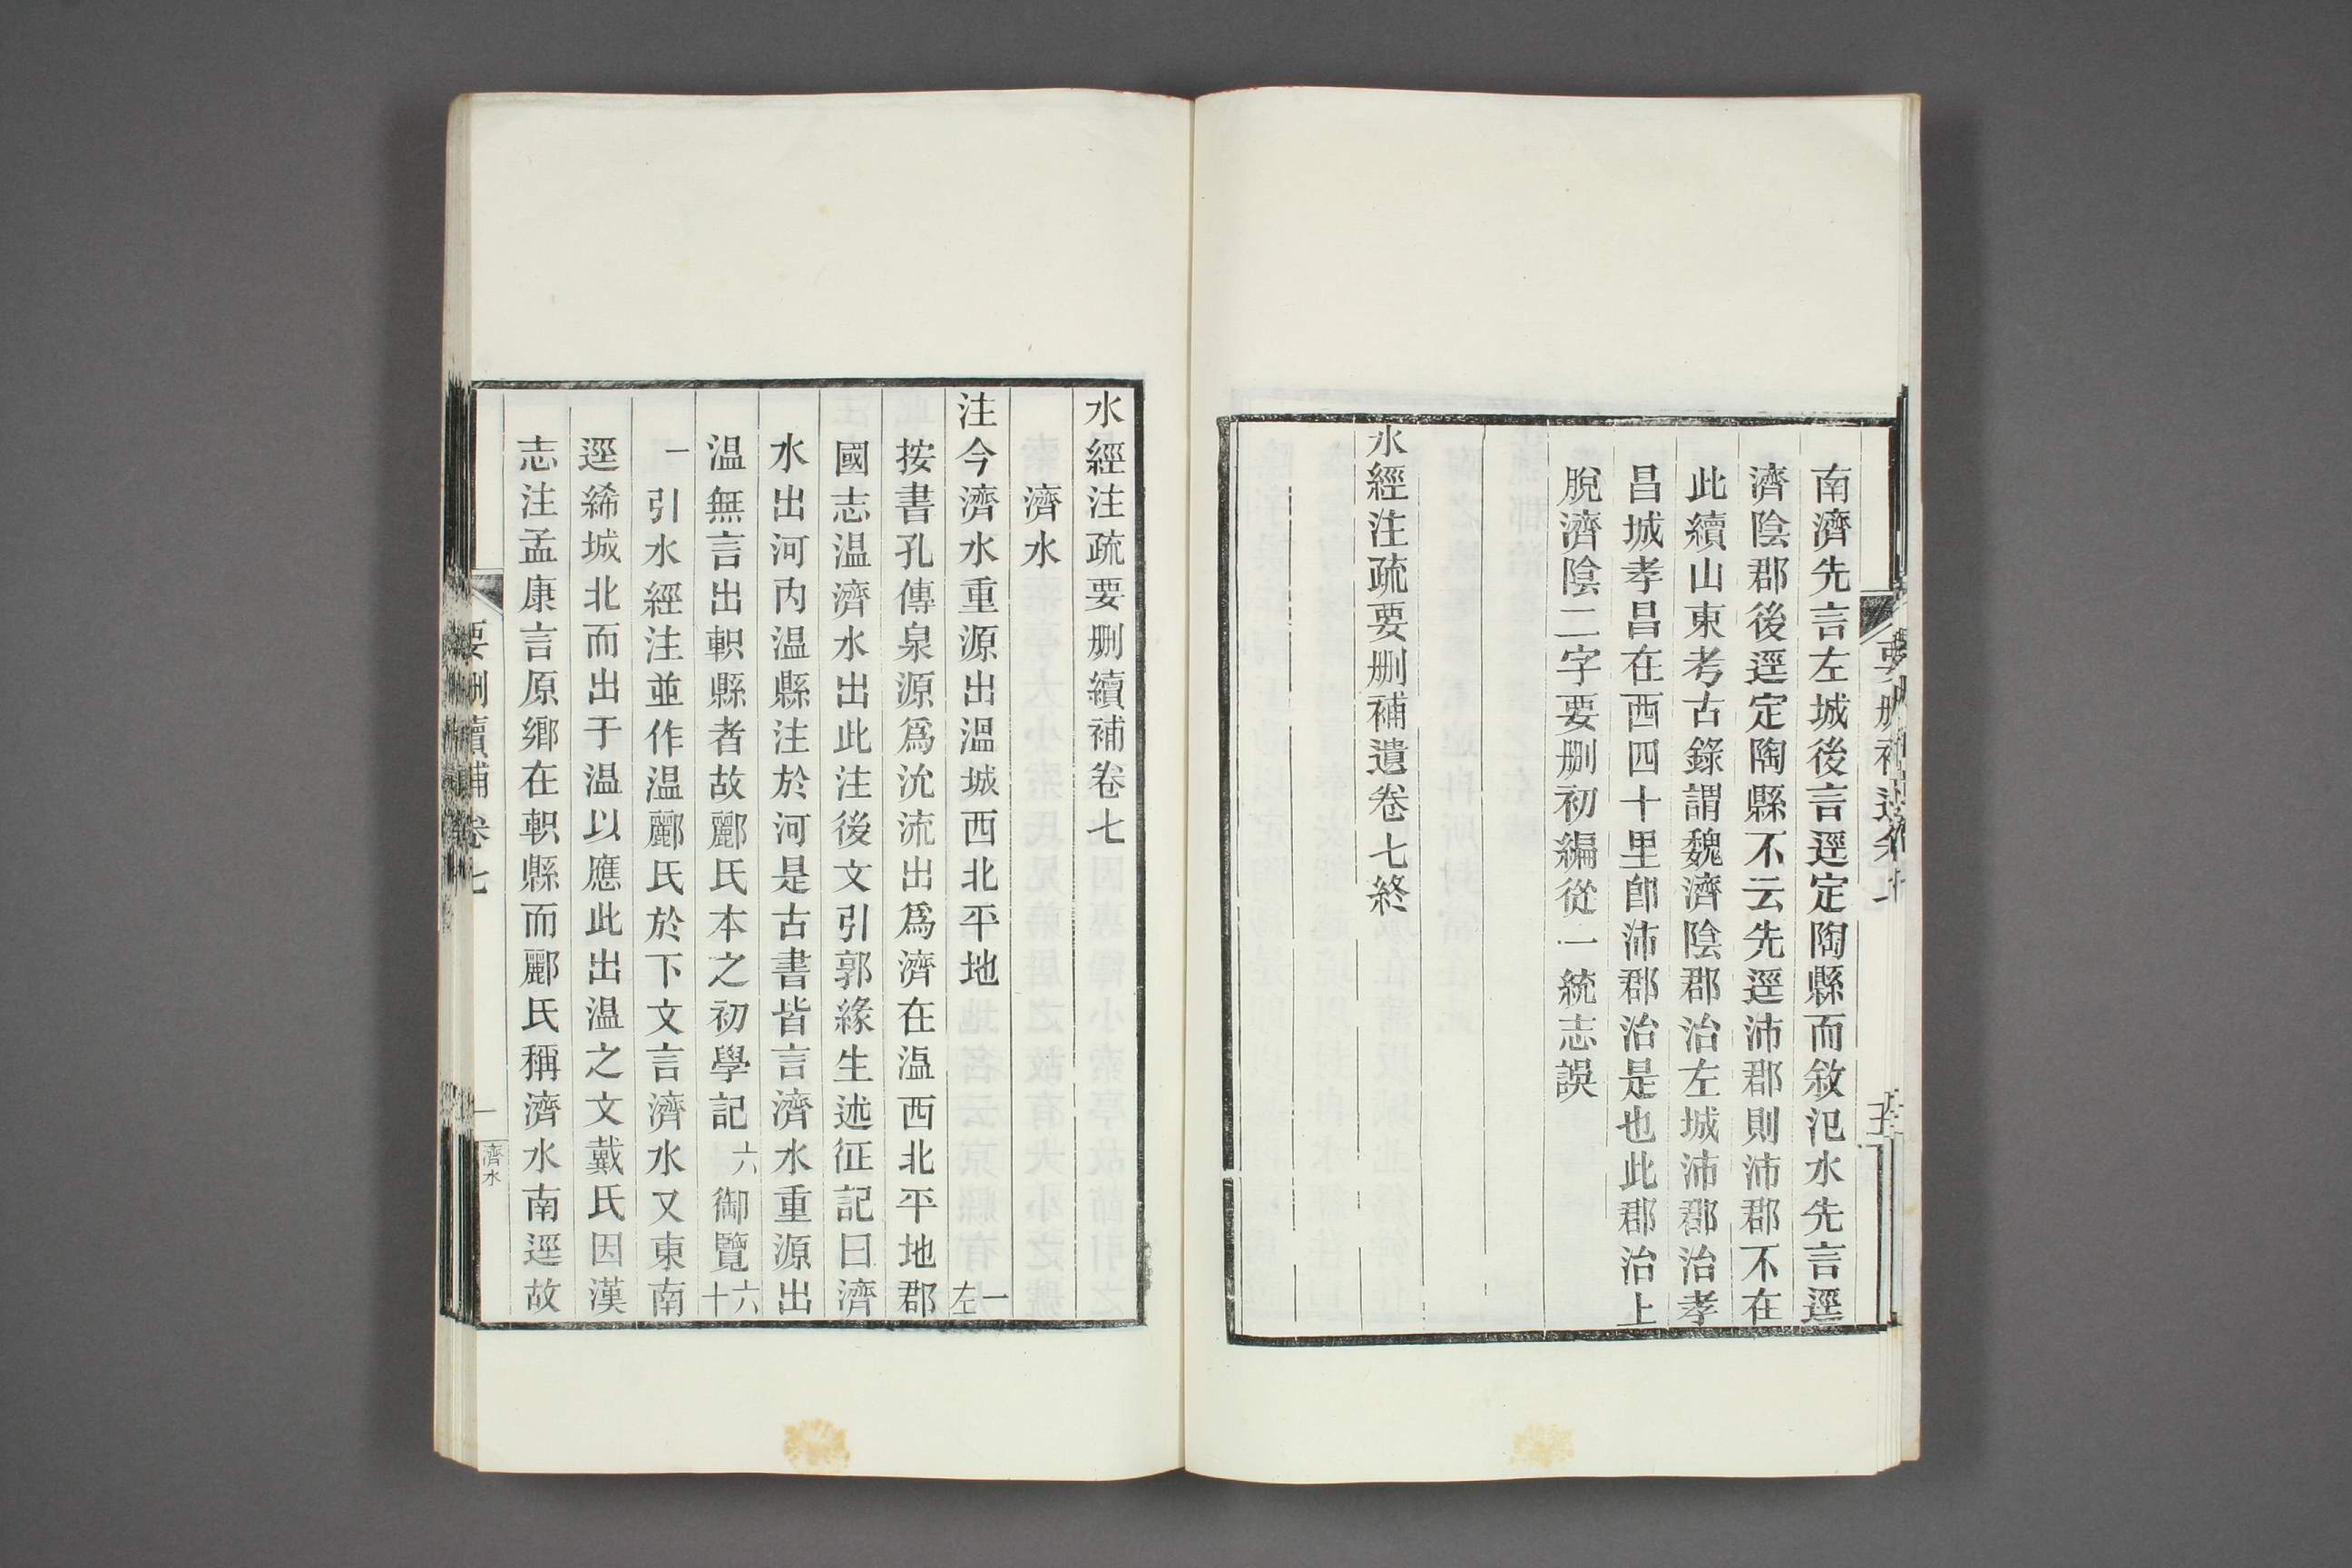 南濟先言左城後言逕定陶縣而敘氾水先言逕
濟陰郡後逕定陶縣不云先逕沛郡則沛郡不在
此續山東考古錄謂魏濟陰郡治左城沛郡治孝
昌城孝昌在西四十里卽沛郡治是也此郡治上
脫濟陰二字要刪初編從一統志誤
水經注疏要刪補遺卷七終
水經注疏要刪續補卷七
濟水
注今濟水重源出溫城西北平地 一左
按書孔傳泉源爲沇流出爲濟在温西北平地郡
國志温濟水出此注後文引郭緣生述征記曰濟
水出河內温縣注於河是古書皆言濟水重源出
温無言出軹縣者故酈氏本之初學記六御覽六十
一引水經注並作温酈氏於下文言濟水又東南
逕絺城北而出于温以應此出温之文戴氏因漢
志注孟康言原鄉在軹縣而酈氏稱濟水南逕故
要刪續補卷七
一
濟水